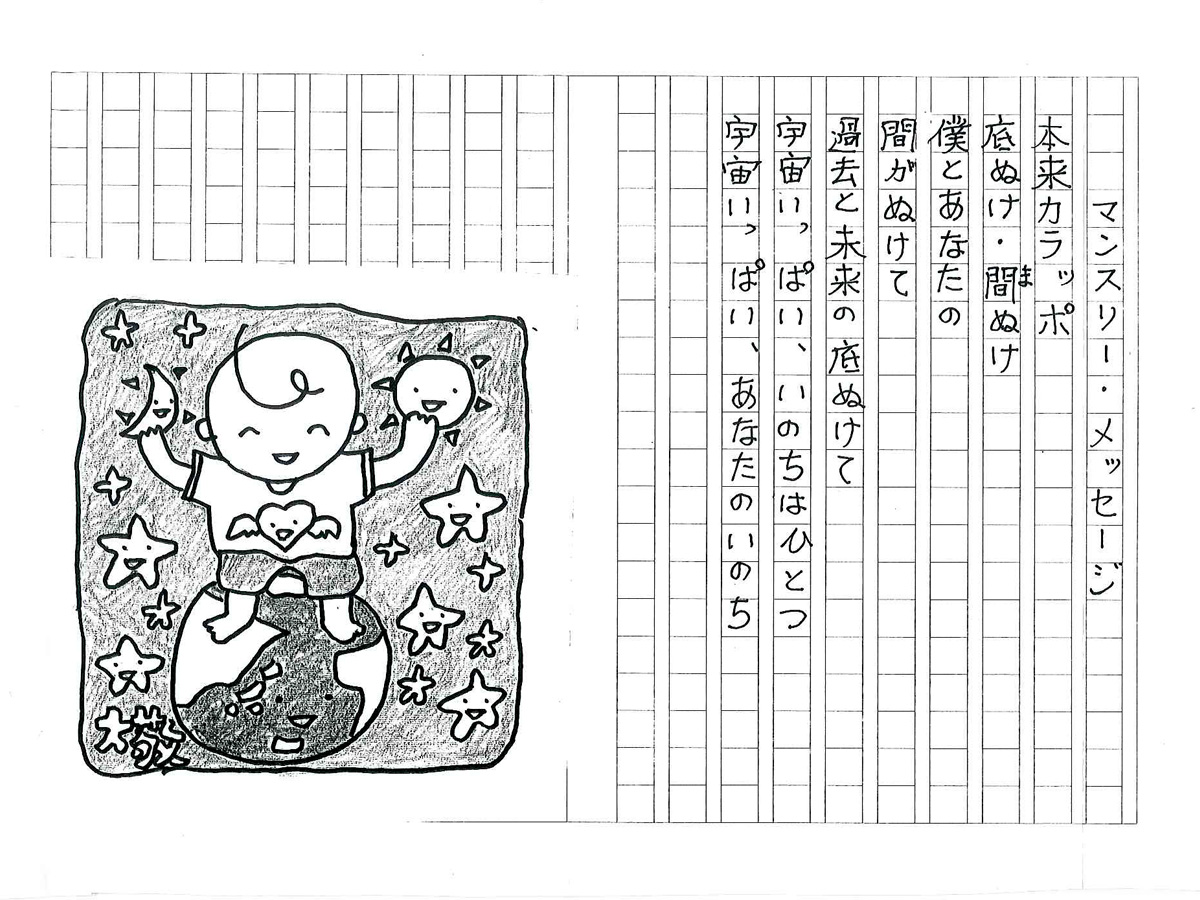 マンスリー・メッセージ
本来カラッポ
底ぬけ・間ぬけ
ま
僕とあなたの
間がぬけて
過去と未来の底ぬけて
宇宙いっぱい、いのちはひとつ
宇宙いっぱい、あなたのいのち